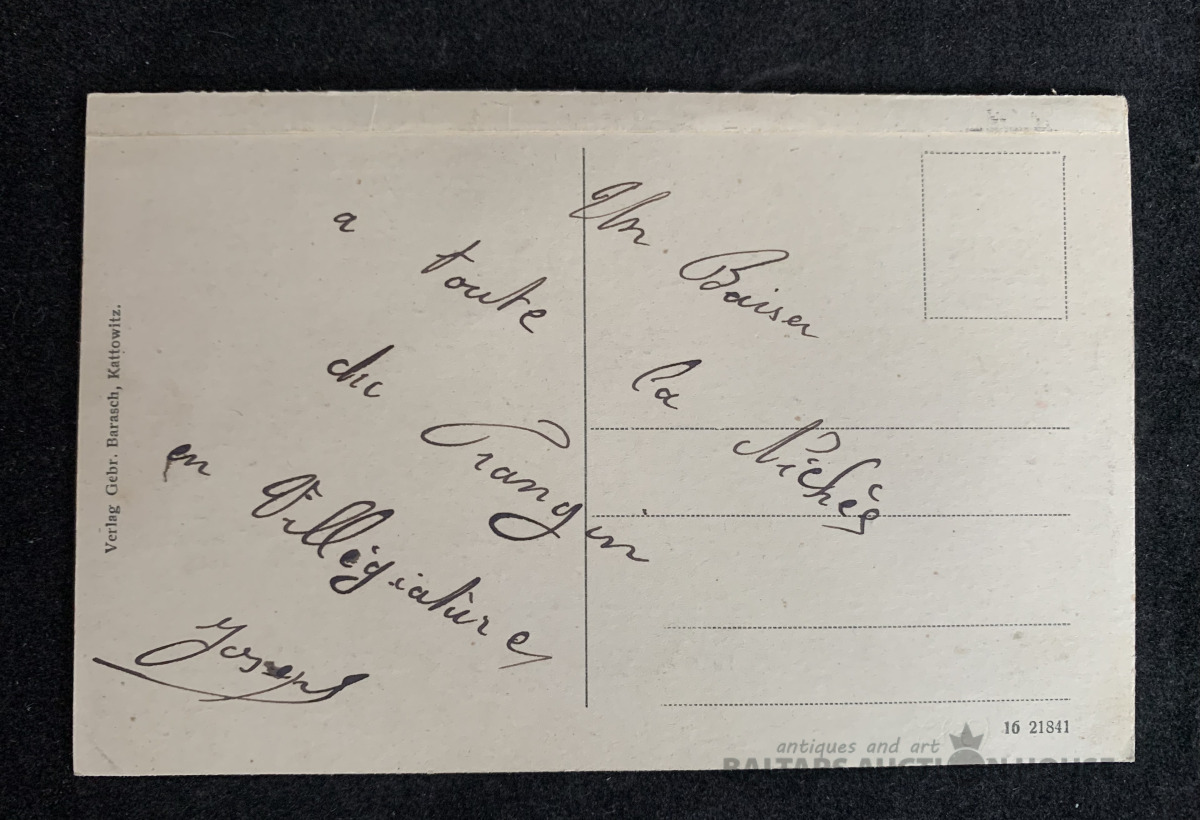 Un Baiser
a toute la Nichée
du Frangin
en Villégiature
Joseph
Verlag Gebr. Barasch, Kattowitz.
16 21841
antiques and art
BALTARS AUCTION HOUSE